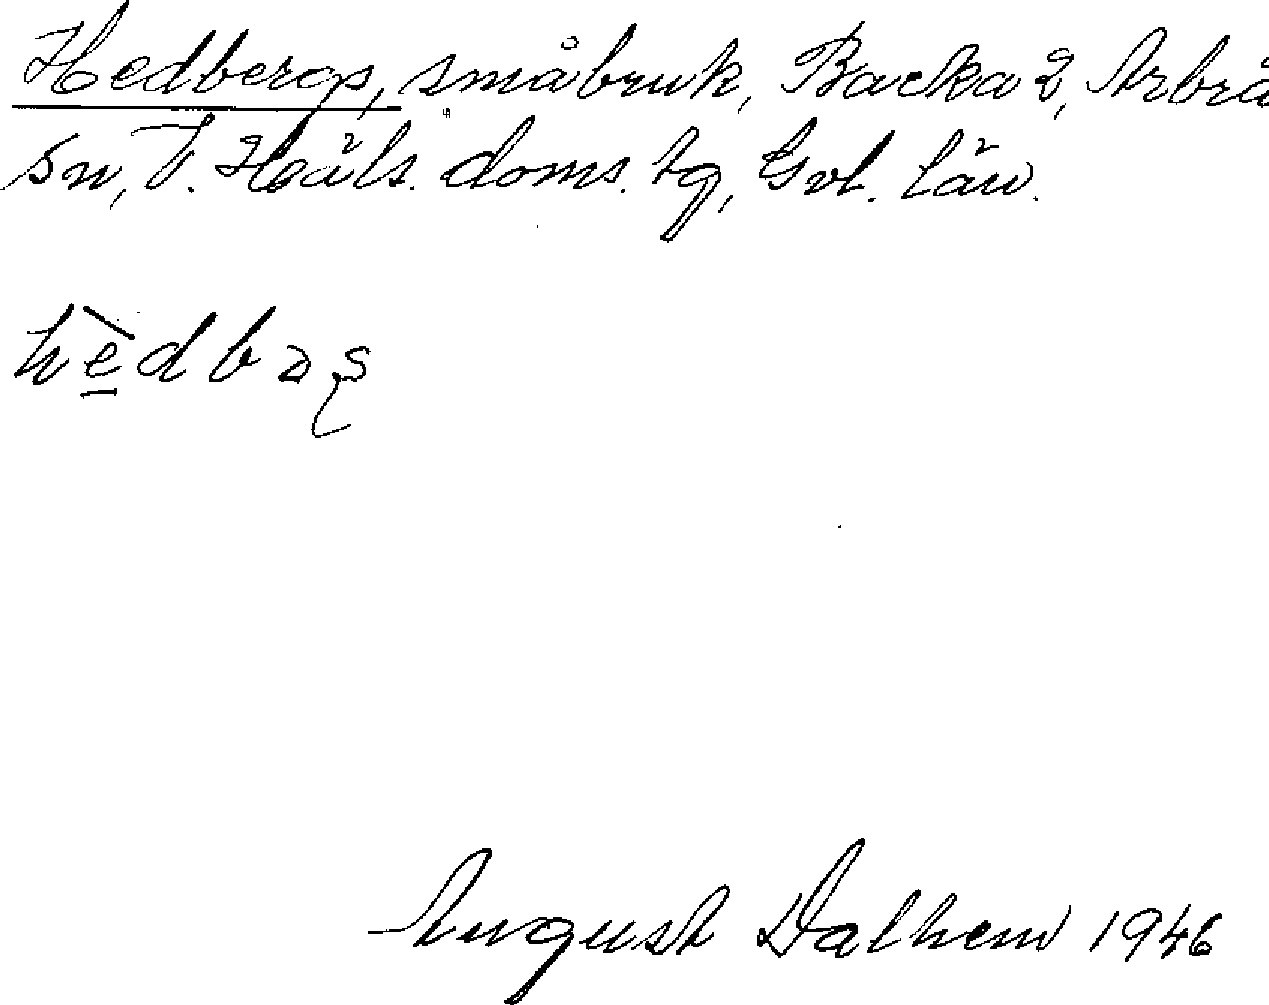 Hedbergs, småbruk, Backa 2, Arbrå
sn, V. Häls. doms. tg, Gvl. län.
hèdbaʂ
August Dalhem 1946